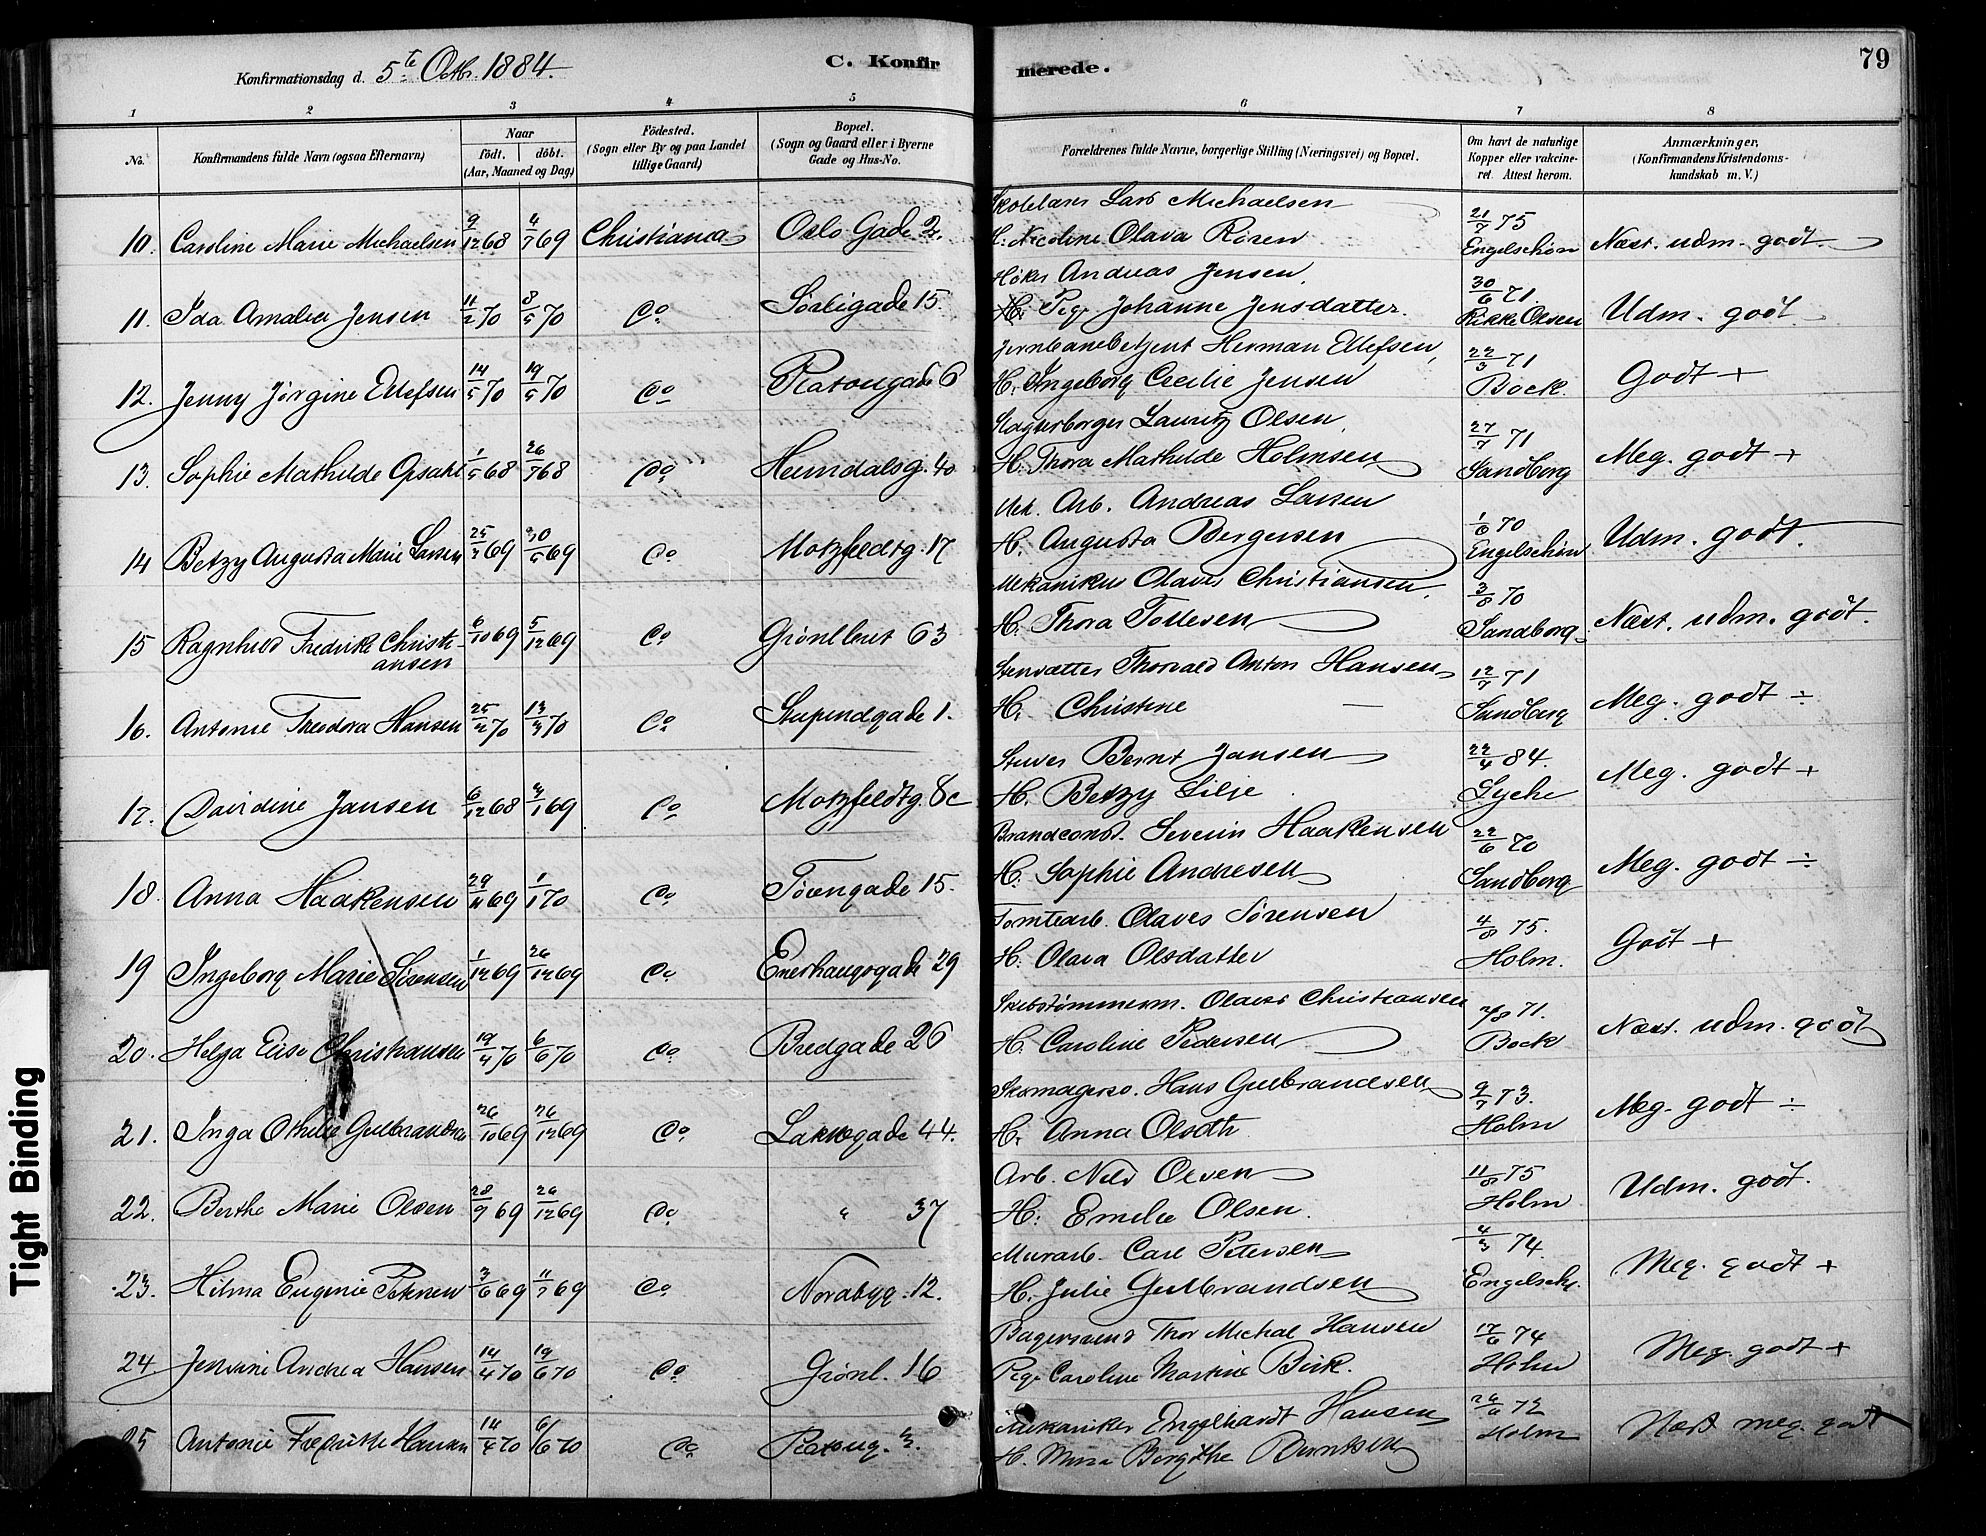 Konfirmationsdag d. 5te Octbr. 1884.
C. Konfirmerede.
79
1 2 3 4 5 6 7 8
No. Konfirmandens fulde Navn (ogsaa Efternavn) Naar født. døbt. (Aar, Maaned og Dag) Fødested. (Sogn eller By og paa Landet tillige Gaard) Bopæl. (Sogn og Gaard eller i Byerne Gade og Hus-No. Forældrenes fulde Navne, borgerlige Stilling (Næringsvei) og Bopæl. Om havt de naturlige Kopper eller vakcineret. Attest herom. Anmærkninger, (Konfirmandens Kristendomskundskab m. V.)
Skolelærer Lars Michaelsen
10. Caroline Marie Michaelsen 9/12 68 4/7 69 Christiania Oslo Gade 2. H. Nicoline Olava Rosen 21/7 75 Engelschøn Næst. udm. godt.
Høker Andreas Jensen,
11. Ida Amalie Jensen 11/2 70 8/5 70 Do Sørligade 15. Pige Johanne Jensdatter. 30/6 71. Rikke Olsen Udm. godt
Jernbanebetjent Herman Ellefsen,
12. Jenny Jørgine Ellefsen 14/5 70 19/5 70 Do Platougade 6 H. Ingeborg Cecilie Jensen 22/3 71 Bock. Godt +
Lauritz Olsen,
13. Sophie Mathilde Opsahl 1/5 68 26/7 68 Do Heimdalsg. 40 H. Thora Mathilde Holmsen 27/7 71 Sandberg Meg. godt +
Mek. Arb. Andreas Larsen
14 Betzy Augusta Marie Larsen 25/3 69 30/5 69 Do Motzfeldtg. 17 H. Augusta Bergersen 1/6 70 Engelschøn Udm. godt.
Mekanikus Olaves Christiansen,
15 Ragnhild Fredrikke Christiansen 6/10 69 5/12 69 Do Grønlleret 63 H. Thora Tollesen 3/8 70 Sandborg Næst. udm. godt.
Stensætter Thorvald Anton Hansen
16. Antonie Theodora Hansen 25/2 70 13/3 70 Do Stupendgade 1. H. Christine — 12/7 71 Sandberg Meg. godt ÷
Stuver Bernt Jansen
17. Davidine Jansen 6/12 68 3/1 69 Do Motzfeldtg. 8c H. Betzy Lilje 22/4 84. Lyche Meg. godt +
Brandconst. Severin Haakensen
18. Anna Haakensen 29/11 69 1/1 70 Do Tøiengade 15. H. Sophie Andresen 22/6 70 Sandberg Meg. godt ÷
Tomtearb. Olaves Sørensen
19 Ingeborg Marie Sørensen 1/12 69 26/12 69 Do Enerhaugsgade 29 H. Olava Olsdatter 4/8 75. Holm. Godt +
Skibstømmerm. Olaves Christiansen
20. Helga Elise Christiansen 19/4 70 6/6 70 Do Bredgade 26 H. Caroline Pedersen 71. Bock Næst. udm. godt
Skomagersv. Hans Gulbrandsen
21. Inga Othilie Gulbrandsen 26/10 69 26/12 69 Do Lakkegade 44. H. Anna Olsdtr 9/7 73. Holm Meg. godt ÷
Arb. Nils Olsen
22. Berthe Marie Olsen 28/9 69 26/12 69 Do " 37 H. Emelie Olsen. 11/8 75 Holm Udm. godt.
Murarb. Carl Petersen
23. Hilma Eugenie Petersen 3/6 69 11/7 69 Do Nordbyg. 12. H. Julie Gulbrandsen 4/3 74. Engelsch. Meg. godt +
Bagersvend Thor Michal Hansen
24 Jensine Andrea Hansen 14/4 70 19/6 70 Do Grønl. 16 Pige Caroline Martine Birk. 17/6 74 Holm Meg. godt +
Mekaniker Engelhardt Hansen
25 Antonie Hansen 14/4 70 6/6 70 Do Platoug. 3. H. Mina Bergithe 72 Holm Næst meg. godt
Tight Binding